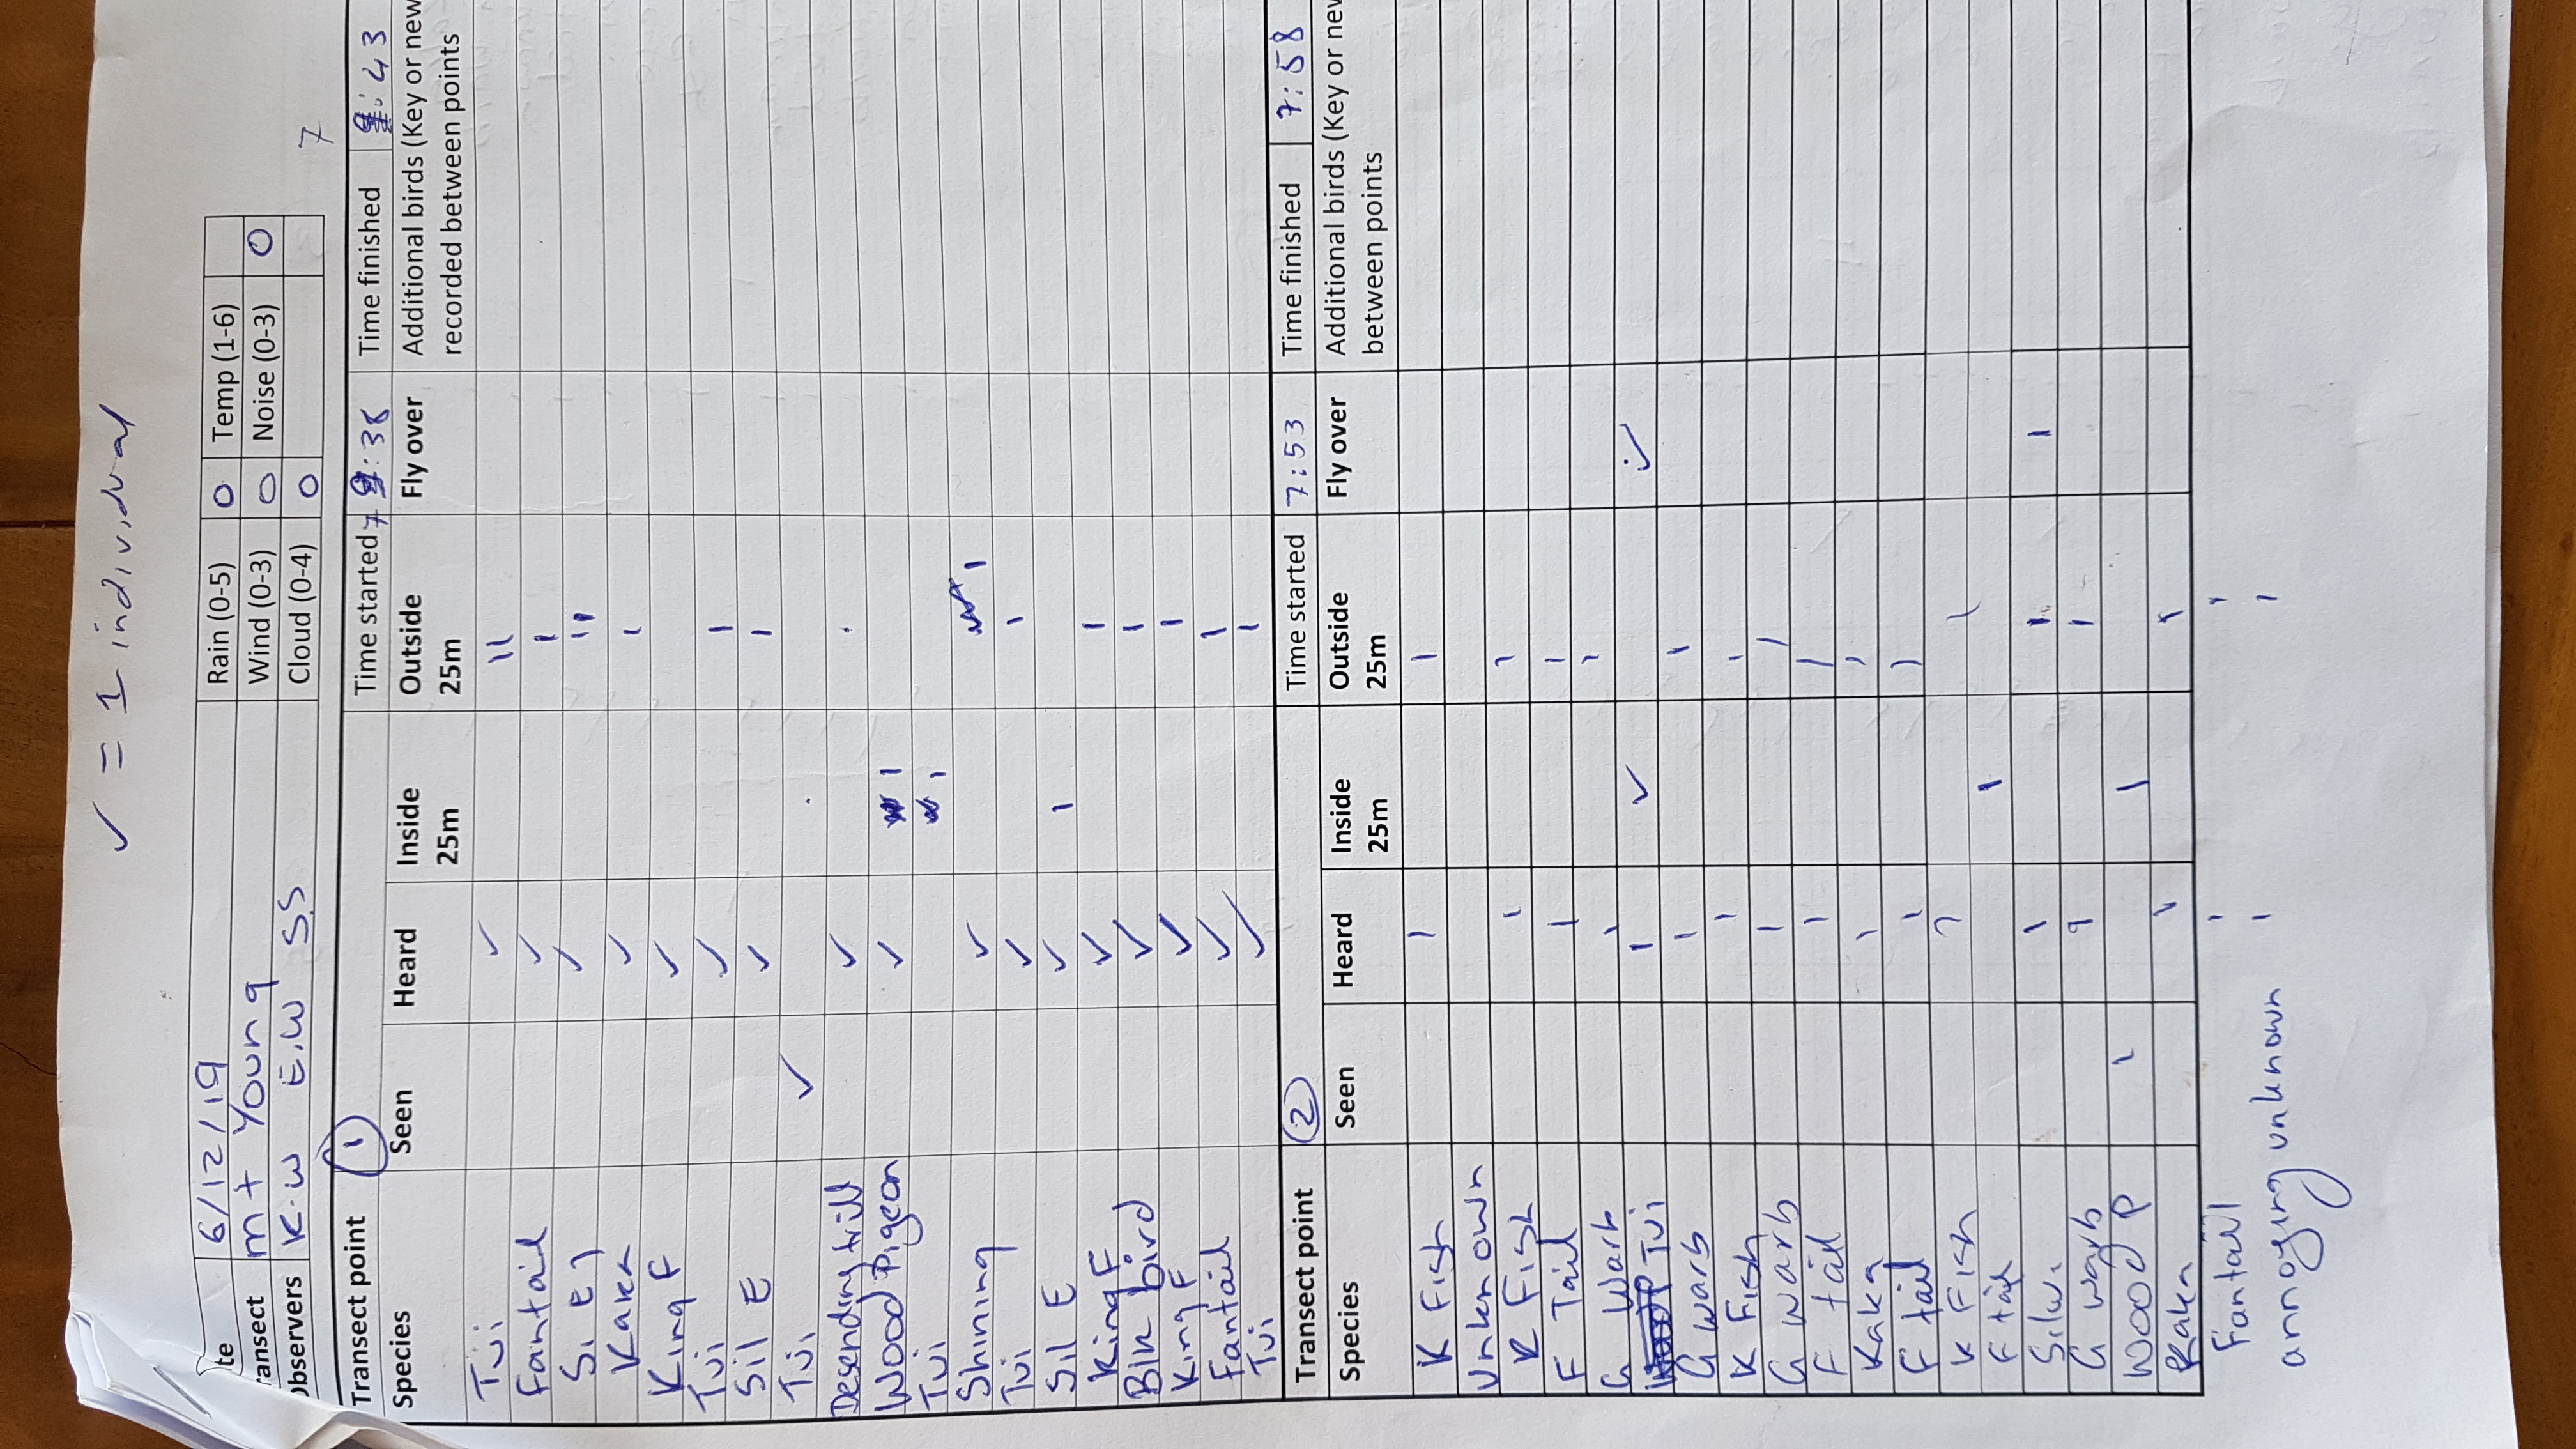 ✓ = 1 individual
te 6/12/19 Rain (0-5) 0 Temp (1-6)
ransect mt Young Wind (0-3) 0 Noise (0-3) 0
bservers K.W E.W S.S Cloud (0-4) 0
7
Transect point 1 Time started 7 :38 Time finished :43
Species Seen Heard Inside 25m Outside 25m Fly over Additional birds (Key or new recorded between points
Tui ✓ 11
Fantail ✓ 1
✓ 11
Kaka ✓ 1
King F ✓
Tui ✓ 1
Sil E ✓ 1
Tui ✓ .
Desending trill ✓ .
Wood Pigeon ✓ 1
Tui 1
Shining ✓ 1
Tui ✓ 1
Sil E ✓ 1
King F ✓ 1
Blk bird ✓ 1
King F ✓ 1
Fantail ✓ 1
Tui ✓ 1
Transect point 2 Time started 7:53 Time finished 7:58
Species Seen Heard Inside 25m Outside 25m Fly over Additional birds (Key or new between points
K Fish 1 1
Unknown
K Fish 1 1
F Tail 1 1
G Warb 1 1
Tui 1 ✓ ✓
G warb 1 1
K Fish 1 1
G warb 1 1
F tail 1 1
Kaka 1 1
F tail 1 1
K Fish 1 1
F tail 1
Silvi 1 1 1
G warb 1 1
Wood P 1 1
Kaka 1 1
Fantail 1 1
annoying unknown 1 1